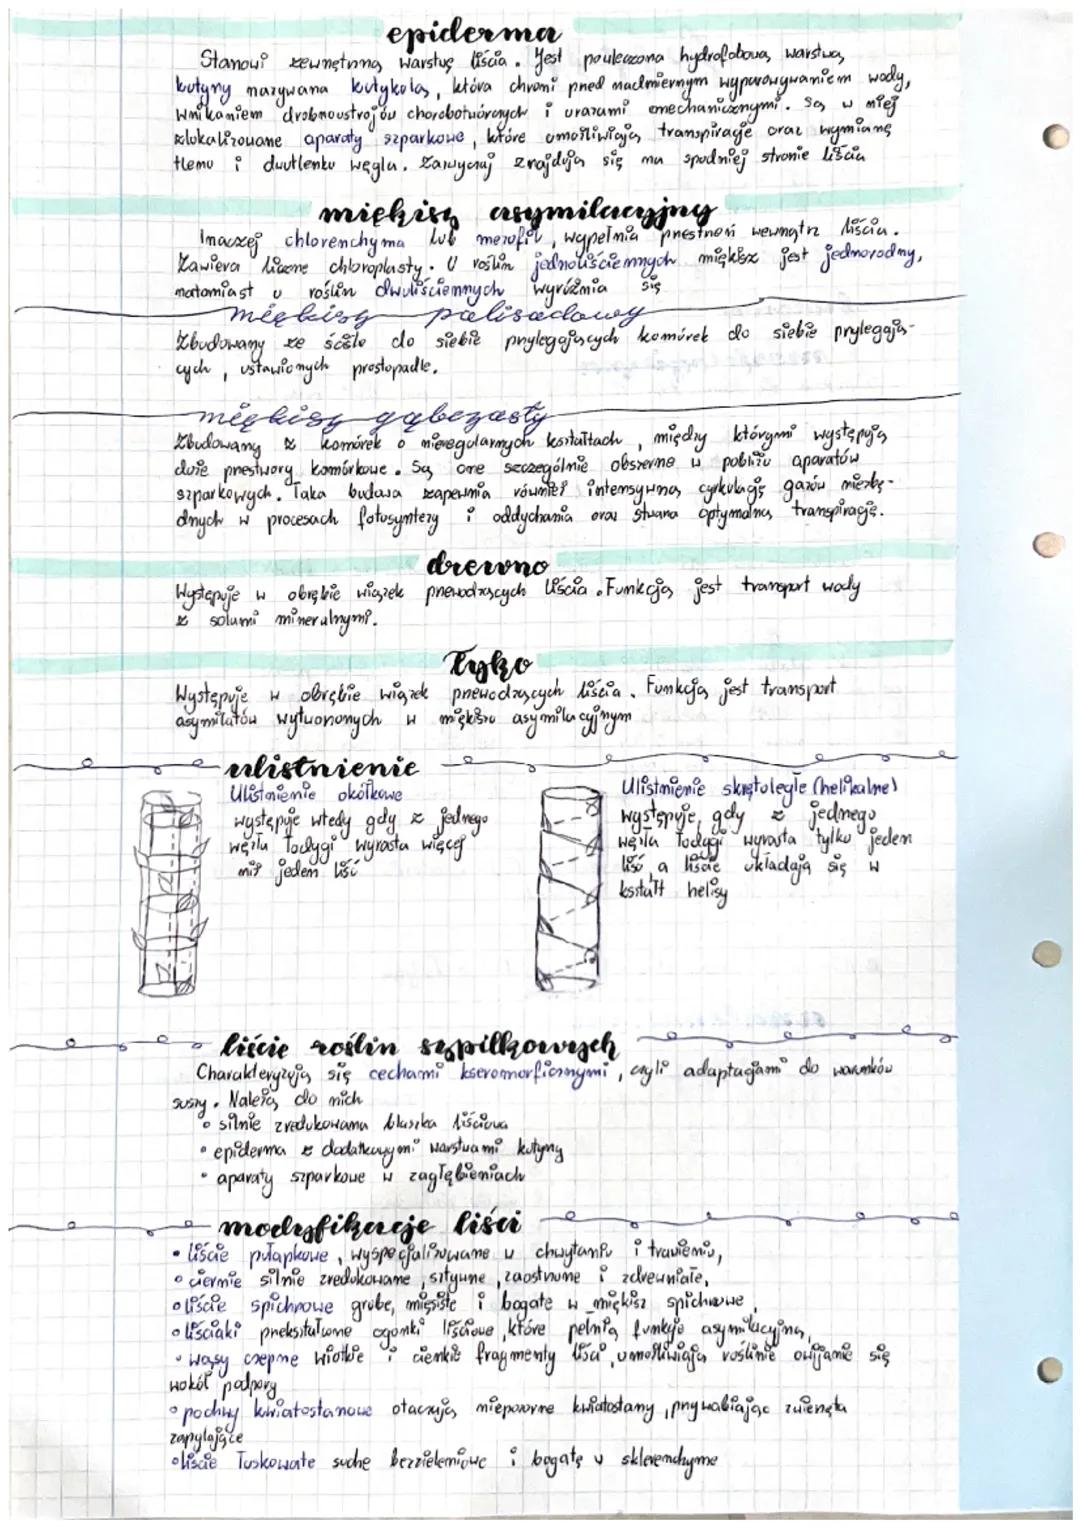 epiderma
Stanowi zewnętrzną warstwę liścia. Jest powleczona hydrofobową warstwą
kutyny nazywaną kutykulą, która chroni przed nadmiernym wyparowywaniem wody,
wnikaniem drobnoustrojów chorobotwórczych i urazami mechanicznymi. Są w niej
zlokalizowane aparaty szparkowe, które umożliwiają transpirację oraz wymianę
tlenu i dwutlenku węgla. Zazwyczaj znajdują się na spodniej stronie liścia
miękisz asymilacyjny
Inaczej chlorenchyma lub mezofil, wypełnia przestrzeń wewnątrz liścia.
Zawiera liczne chloroplasty. U roślin jednoliściennych miękisz jest jednorodny,
natomiast u roślin dwuliściennych wyróżnia się
miękisz palisadowy
Zbudowany ze ściśle do siebie przylegających komórek do siebie przylegają-
cych, ustawionych prostopadle.
miękisz gąbczasty
Zbudowany z komórek o nieregularnych kształtach, między którymi występują
duże przestwory komórkowe. Są one szczególnie obszerne w pobliżu aparatów
szparkowych. Taka budowa zapewnia również intensywną cyrkulację gazów niezbę-
dnych w procesach fotosyntezy i oddychania oraz stwarza optymalną transpirację.
drewno
Występuje w obrębie wiązek przewodzących liścia. Funkcją jest transport wody
z solami mineralnymi.
łyko
Występuje w obrębie wiązek przewodzących liścia. Funkcją jest transport
asymilatów wytworzonych w miękiszu asymilacyjnym
ulistnienie
Ulistnienie okółkowe
występuje wtedy gdy z jednego
węzła łodygi wyrasta więcej
niż jeden liść
Ulistnienie skrętoległe (helikalne)
występuje, gdy z jednego
węzła łodygi wyrasta tylko jeden
liść, a liście układają się w
kształt helisy
liście roślin szpilkowych
Charakteryzują się cechami kseromorficznymi, czyli adaptacjami do warunków
suszy. Należą do nich
• silnie zredukowana blaszka liściowa
• epiderma z dodatkowymi warstwami kutyny
• aparaty szparkowe w zagłębieniach
modyfikacje liści
• liście pułapkowe, wyspecjalizowane w chwytaniu i trawieniu,
• ciernie silnie zredukowane, sztywne, zaostrzone i zdrewniałe,
• liście spichrzowe grube, mięsiste i bogate w miękisz spichrzowy,
• liściaki przekształcone ogonki liściowe, które pełnią funkcję asymilacyjną,
• wąsy czepne wiotkie i cienkie fragmenty liści, umożliwiają roślinie owijanie się
wokół podpory
• pochwy kwiatostanowe otaczają niepozorne kwiatostany, przywabiając zwierzęta
zapylające
• liście łuskowate suche bezzieleniowe i bogate w sklerenchymę